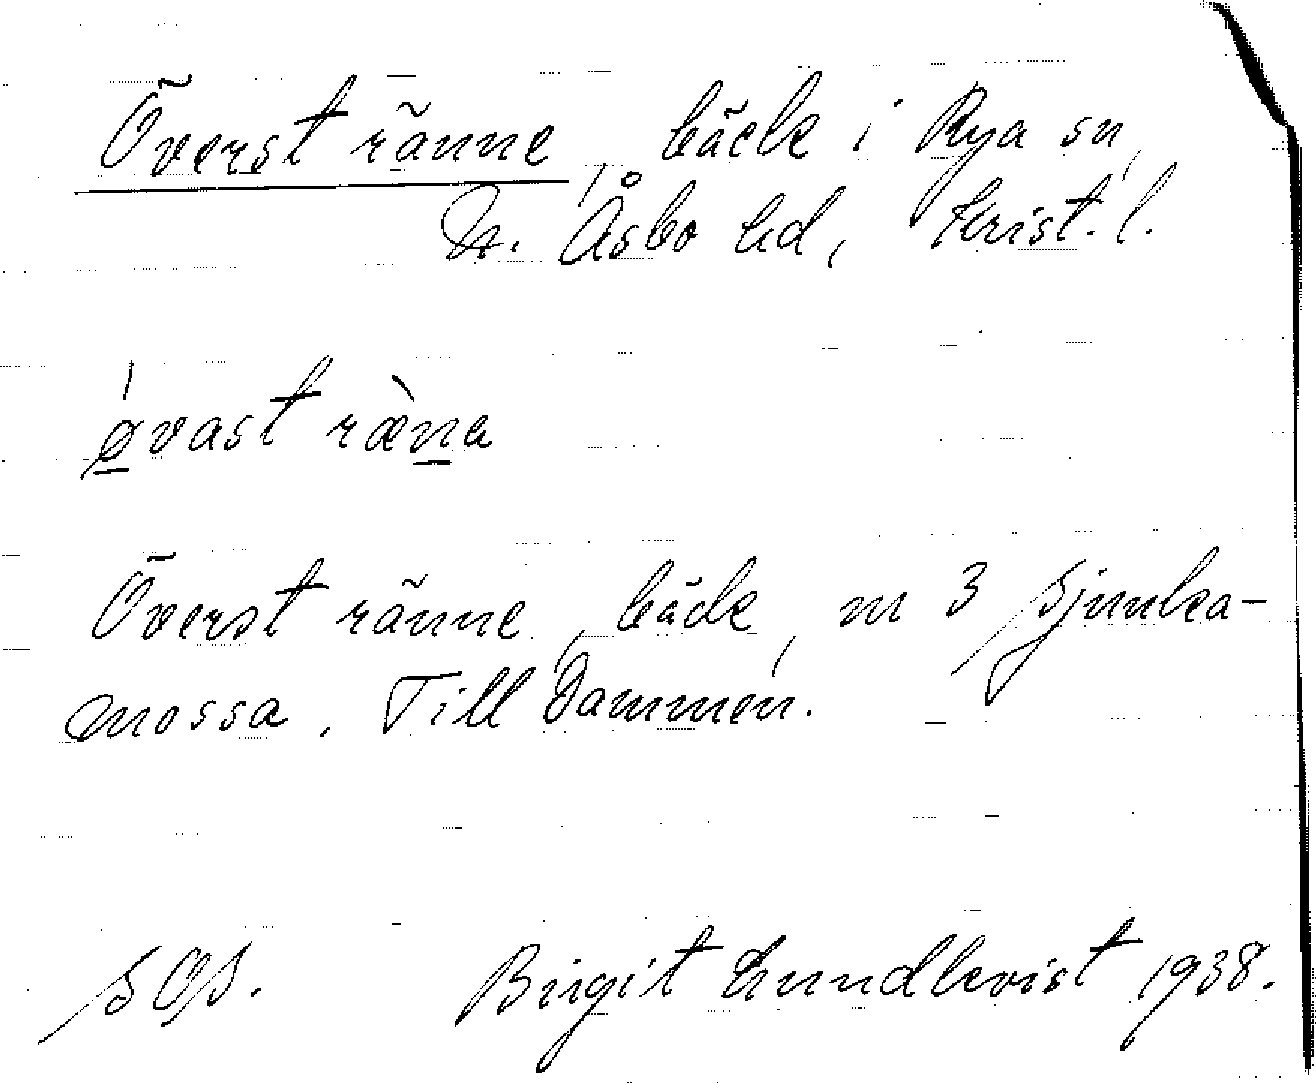 Överst ränne, bäck i Rya sn,
N. Åsbo hd, Krist. l.
øvast ræna
Överst ränne, bäck, m 3 Sjunka-
mossa. Till Dammen.
SOS. Birgit Lundkvist 1938.